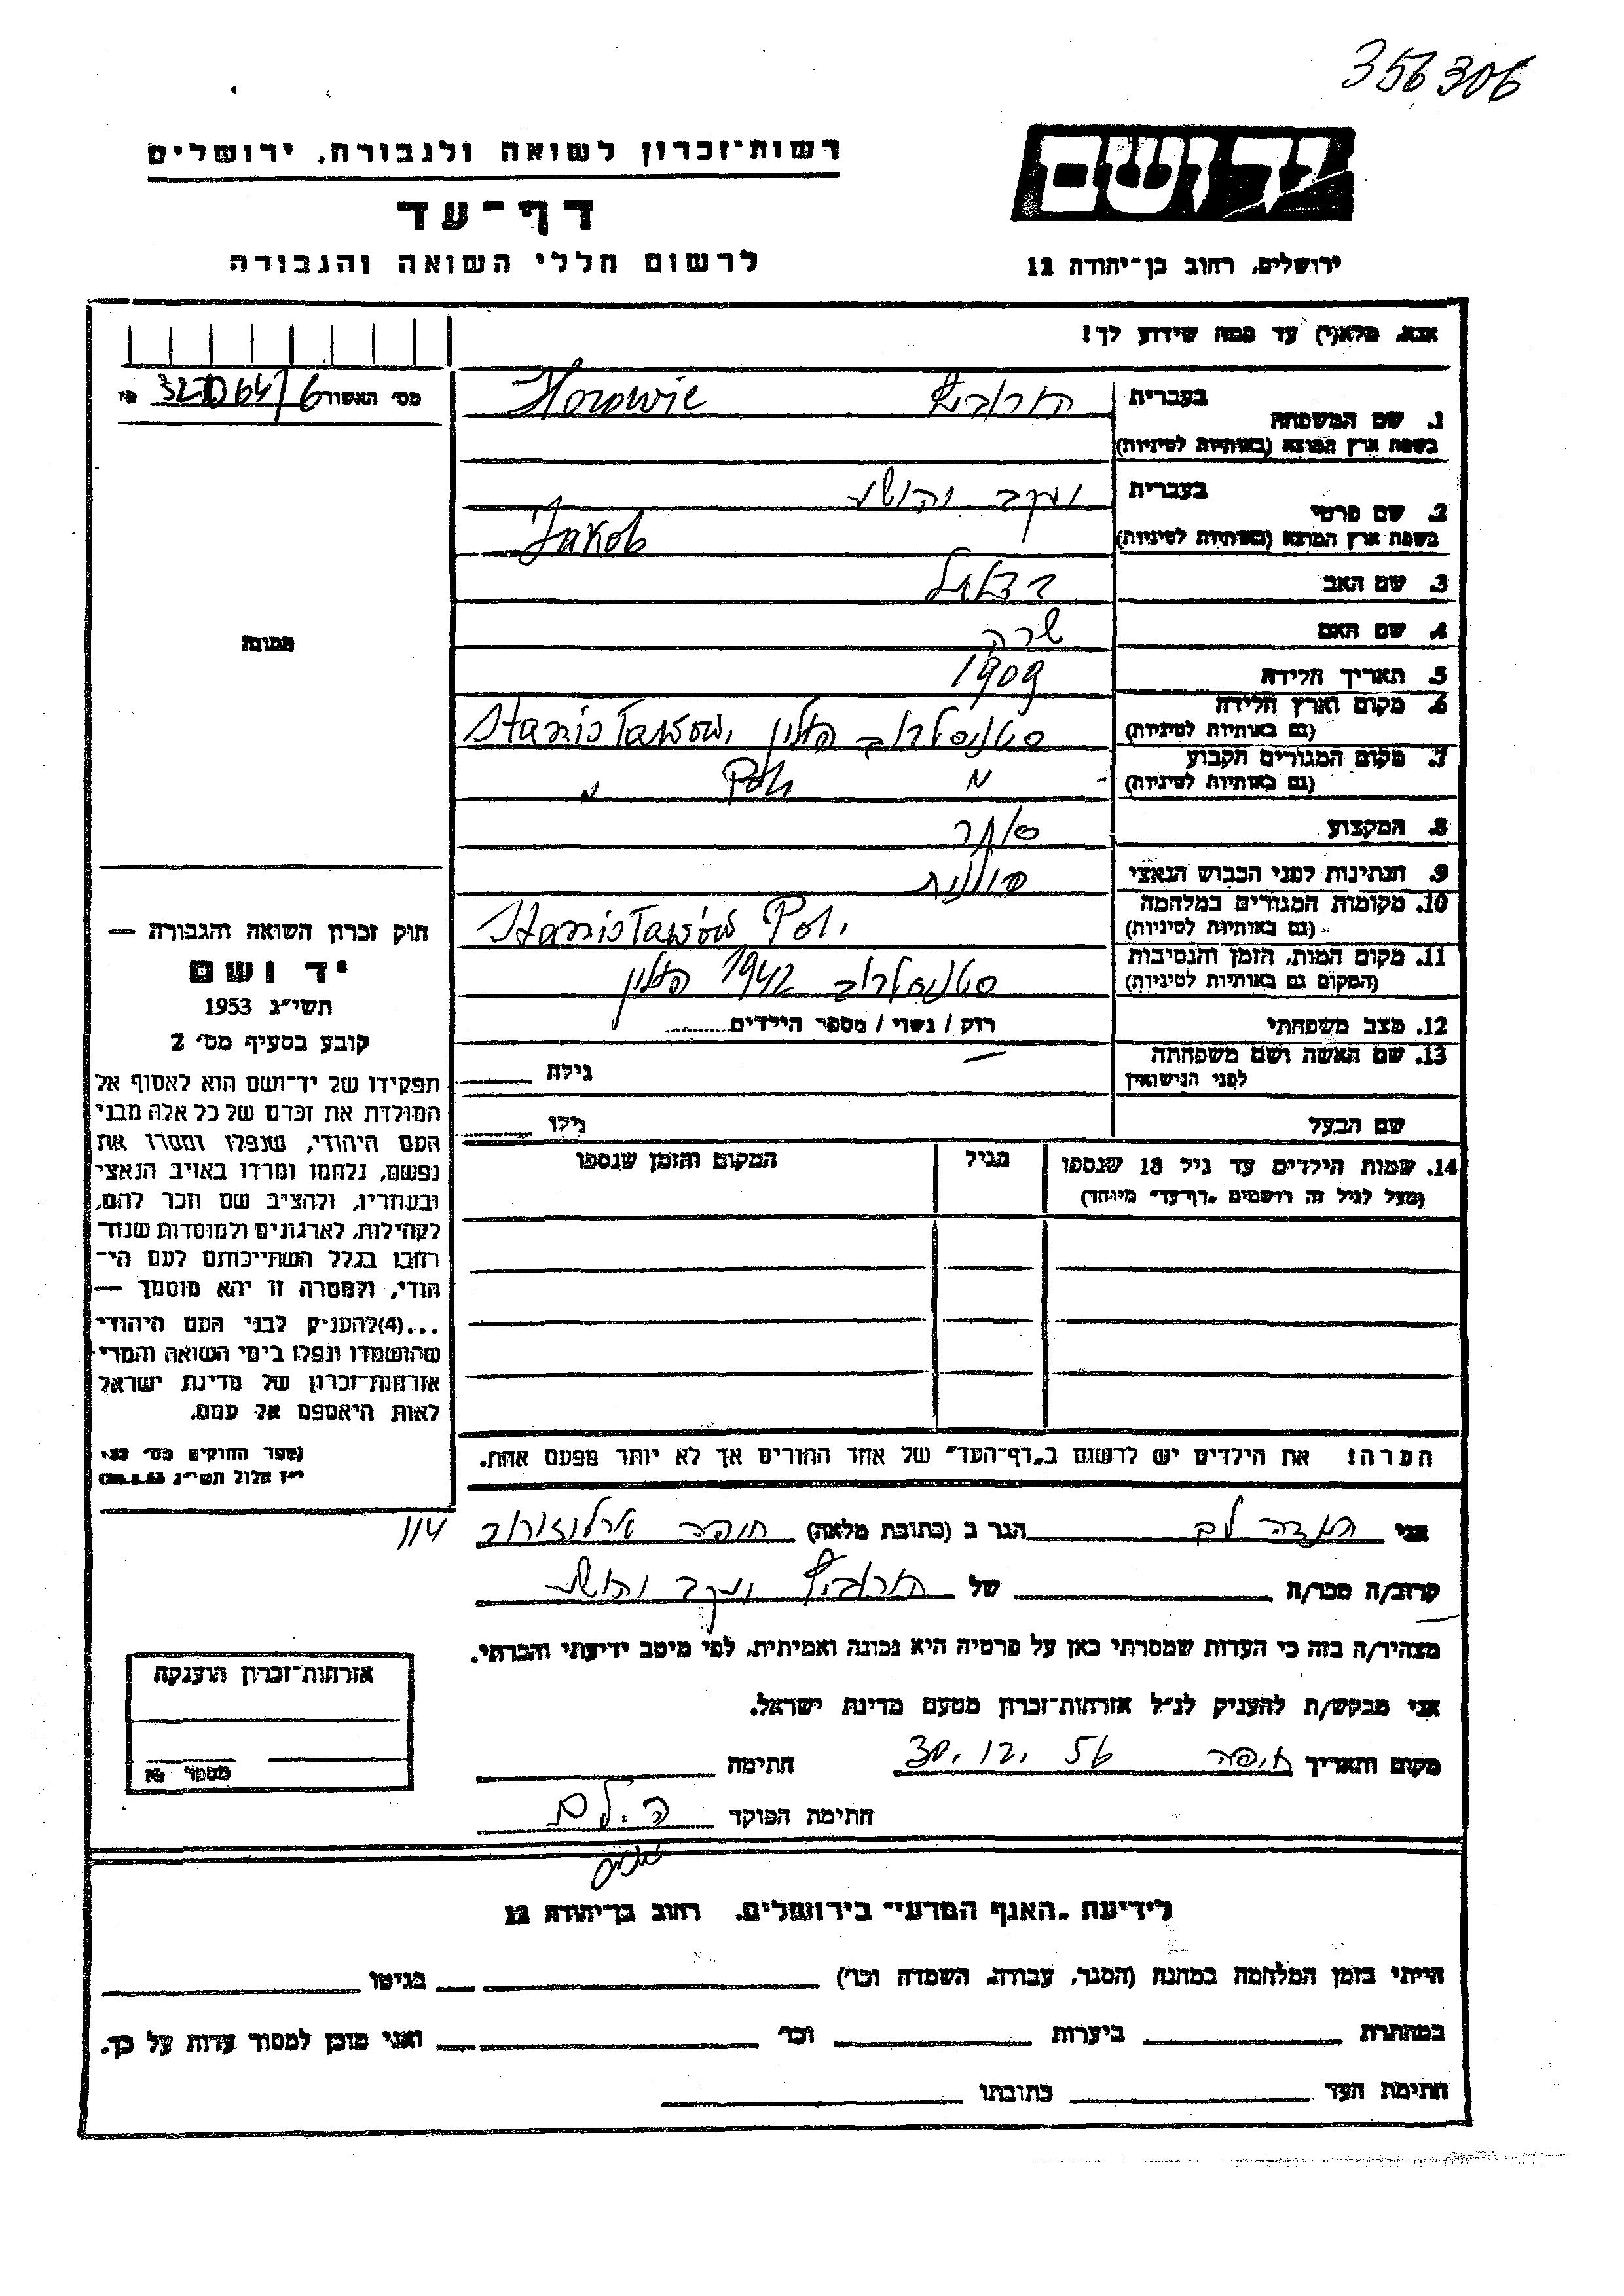 356306
רשות־זכרון לשואה ולגבורה, ירושלים
יד ושם
דף־עד
לרשום חללי השואה והגבורה
ירושלים, רחוב בן־יהודה 12
אנא, מלא(י) עד כמה שידוע לך!
מס׳ האשור
בעברית הורוביץ Horowic
1. שם המשפחה
בשפת ארץ המוצא (באותיות לטיניות)
בעברית יעקב יהושע
2. שם פרטי
בשפת ארץ המוצא (באותיות לטיניות) Jakob
3. שם האב
4. שם האם שרה
5. תאריך הלידה 1909
6. מקום וארץ הלידה סטניסלבוב פולין Stanisławów,
(גם באותיות לטיניות)
7. מקום המגורים הקבוע Pol.
(גם באותיות לטיניות)
8. המקצוע סוחר
9. הנתינות לפני הכבוש הנאצי פולנית
10. מקומות המגורים במלחמה Stanisławów Pol.
(גם באותיות לטיניות)
11. מקום המות, הזמן והנסיבות סטניסלבוב 1942 פולין
(המקום גם באותיות לטיניות)
12. מצב משפחתי רווק / נשוי / מספר הילדים
13. שם האשה ושם משפחתה גילה
לפני הנישואין
שם הבעל גילו
14. שמות הילדים עד גיל 18 שנספו הגיל המקום והזמן שנספו
(מעל לגיל זה רושמים „דף־עד״ מיוחד)
הערה! את הילדים יש לרשום ב„דף־העד״ של אחד ההורים אך לא יותר מפעם אחת.
תמונה
חוק זכרון השואה והגבורה —
יד ושם
תשי״ג 1953
קובע בסעיף מס׳ 2
תפקידו של יד־ושם הוא לאסוף אל
המולדת את זכרם של כל אלה מבני
העם היהודי, שנפלו ומסרו את
נפשם, נלחמו ומרדו באויב הנאצי
ובעוזריו, ולהציב שם וזכר להם,
לקהילות, לארגונים ולמוסדות שנח־
רחבו בגלל השתייכותם לעם הי־
הודי, ולמטרה זו יהא מוסמך —
...(4)להעניק לבני העם היהודי
שהושמדו ונפלו בימי השואה והמרי
אזרחות־זכרון של מדינת ישראל
לאות היאספם אל עמם.
אני הגר ב (כתובת מלאה) חיפה ארלוזורוב 114
קרוב/ה מכר/ה של הורוביץ יעקב יהושע
מצהיר/ה בזה כי העדות שמסרתי כאן על פרטיה היא נכונה ואמיתית, לפי מיטב ידיעתי והכרתי.
אני מבקש/ת להעניק לנ״ל אזרחות־זכרון מטעם מדינת ישראל.
מקום ותאריך חיפה 30.12.56 חתימה
חתימת הפוקד
אזרחות־זכרון הוענקה
מספר №
לידיעת „האגף המדעי״ בירושלים, רחוב בן־יהודה 12
הייתי בזמן המלחמה במחנה (הסגר, עבודה, השמדה וכו׳) בגיטו
במחתרת ביערות וכו׳ ואני מוכן למסור עדות על כך.
חתימת העד כתובתו